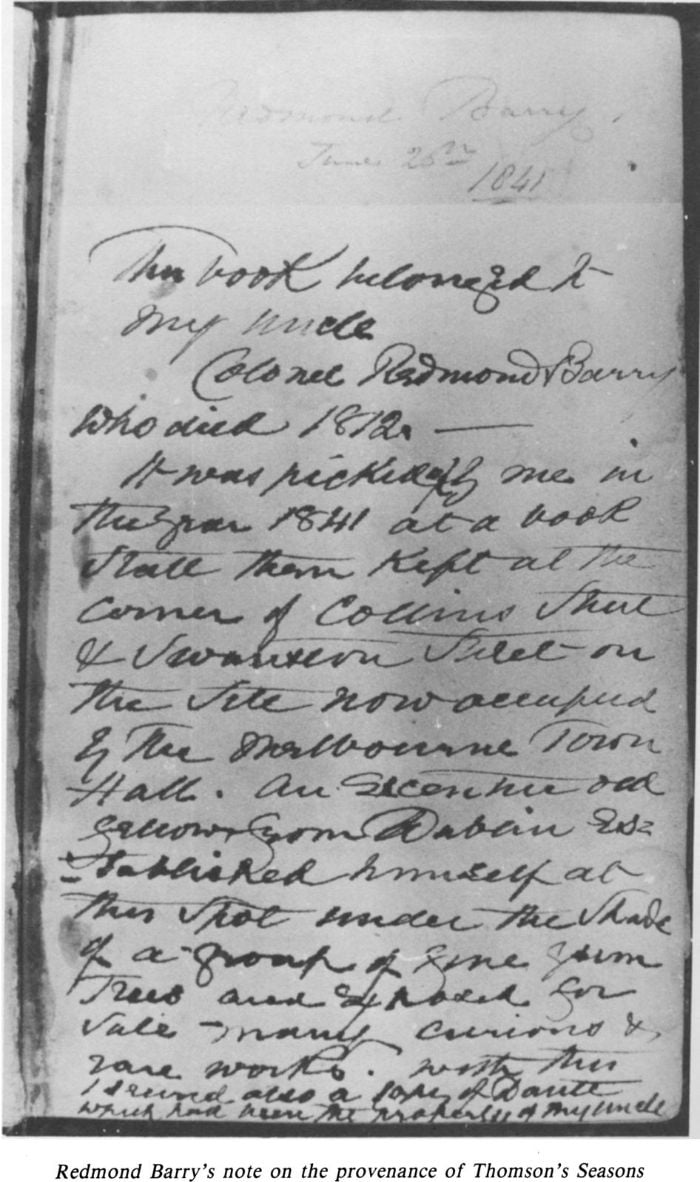 Redmond Barry.
June 26th
1841
This book belonged to
my uncle
Colonel Redmond Barry
who died 1812. —
It was picked up by me in
the year 1841 at a book
stall then kept at the
corner of Collins Street
& Swanston Street on
the site now occupied
by the Melbourne Town
Hall. An eccentric old
fellow from Dublin es=
=tablished himself at
this spot under the shade
of a group of fine gum
trees and exposed for
sale many curious &
rare works. With this
I secured also a copy of Dante
which had been the property of my uncle
Redmond Barry's note on the provenance of Thomson's Seasons